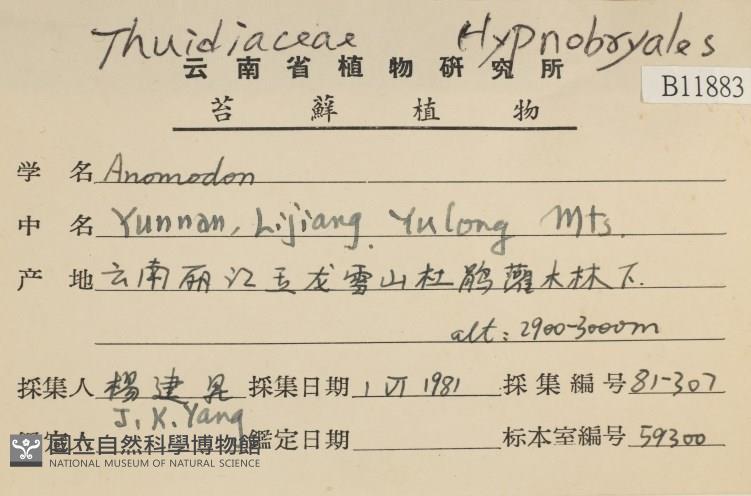 Thuidiaceae Hypnobryales
云南省植物研究所
B11883
苔蘚植物
学名 Anomodon
中名 Yunnan, Lijiang, Yulong Mts.
产地 云南丽江玉龙雪山杜鹃灌木林下.
alt: 2900-3000m
採集人 楊建昆 採集日期 1 VI 1981 採集編号 81-307
J. K. Yang
鑑定日期 标本室編号 59300
國立自然科學博物館
NATIONAL MUSEUM OF NATURAL SCIENCE